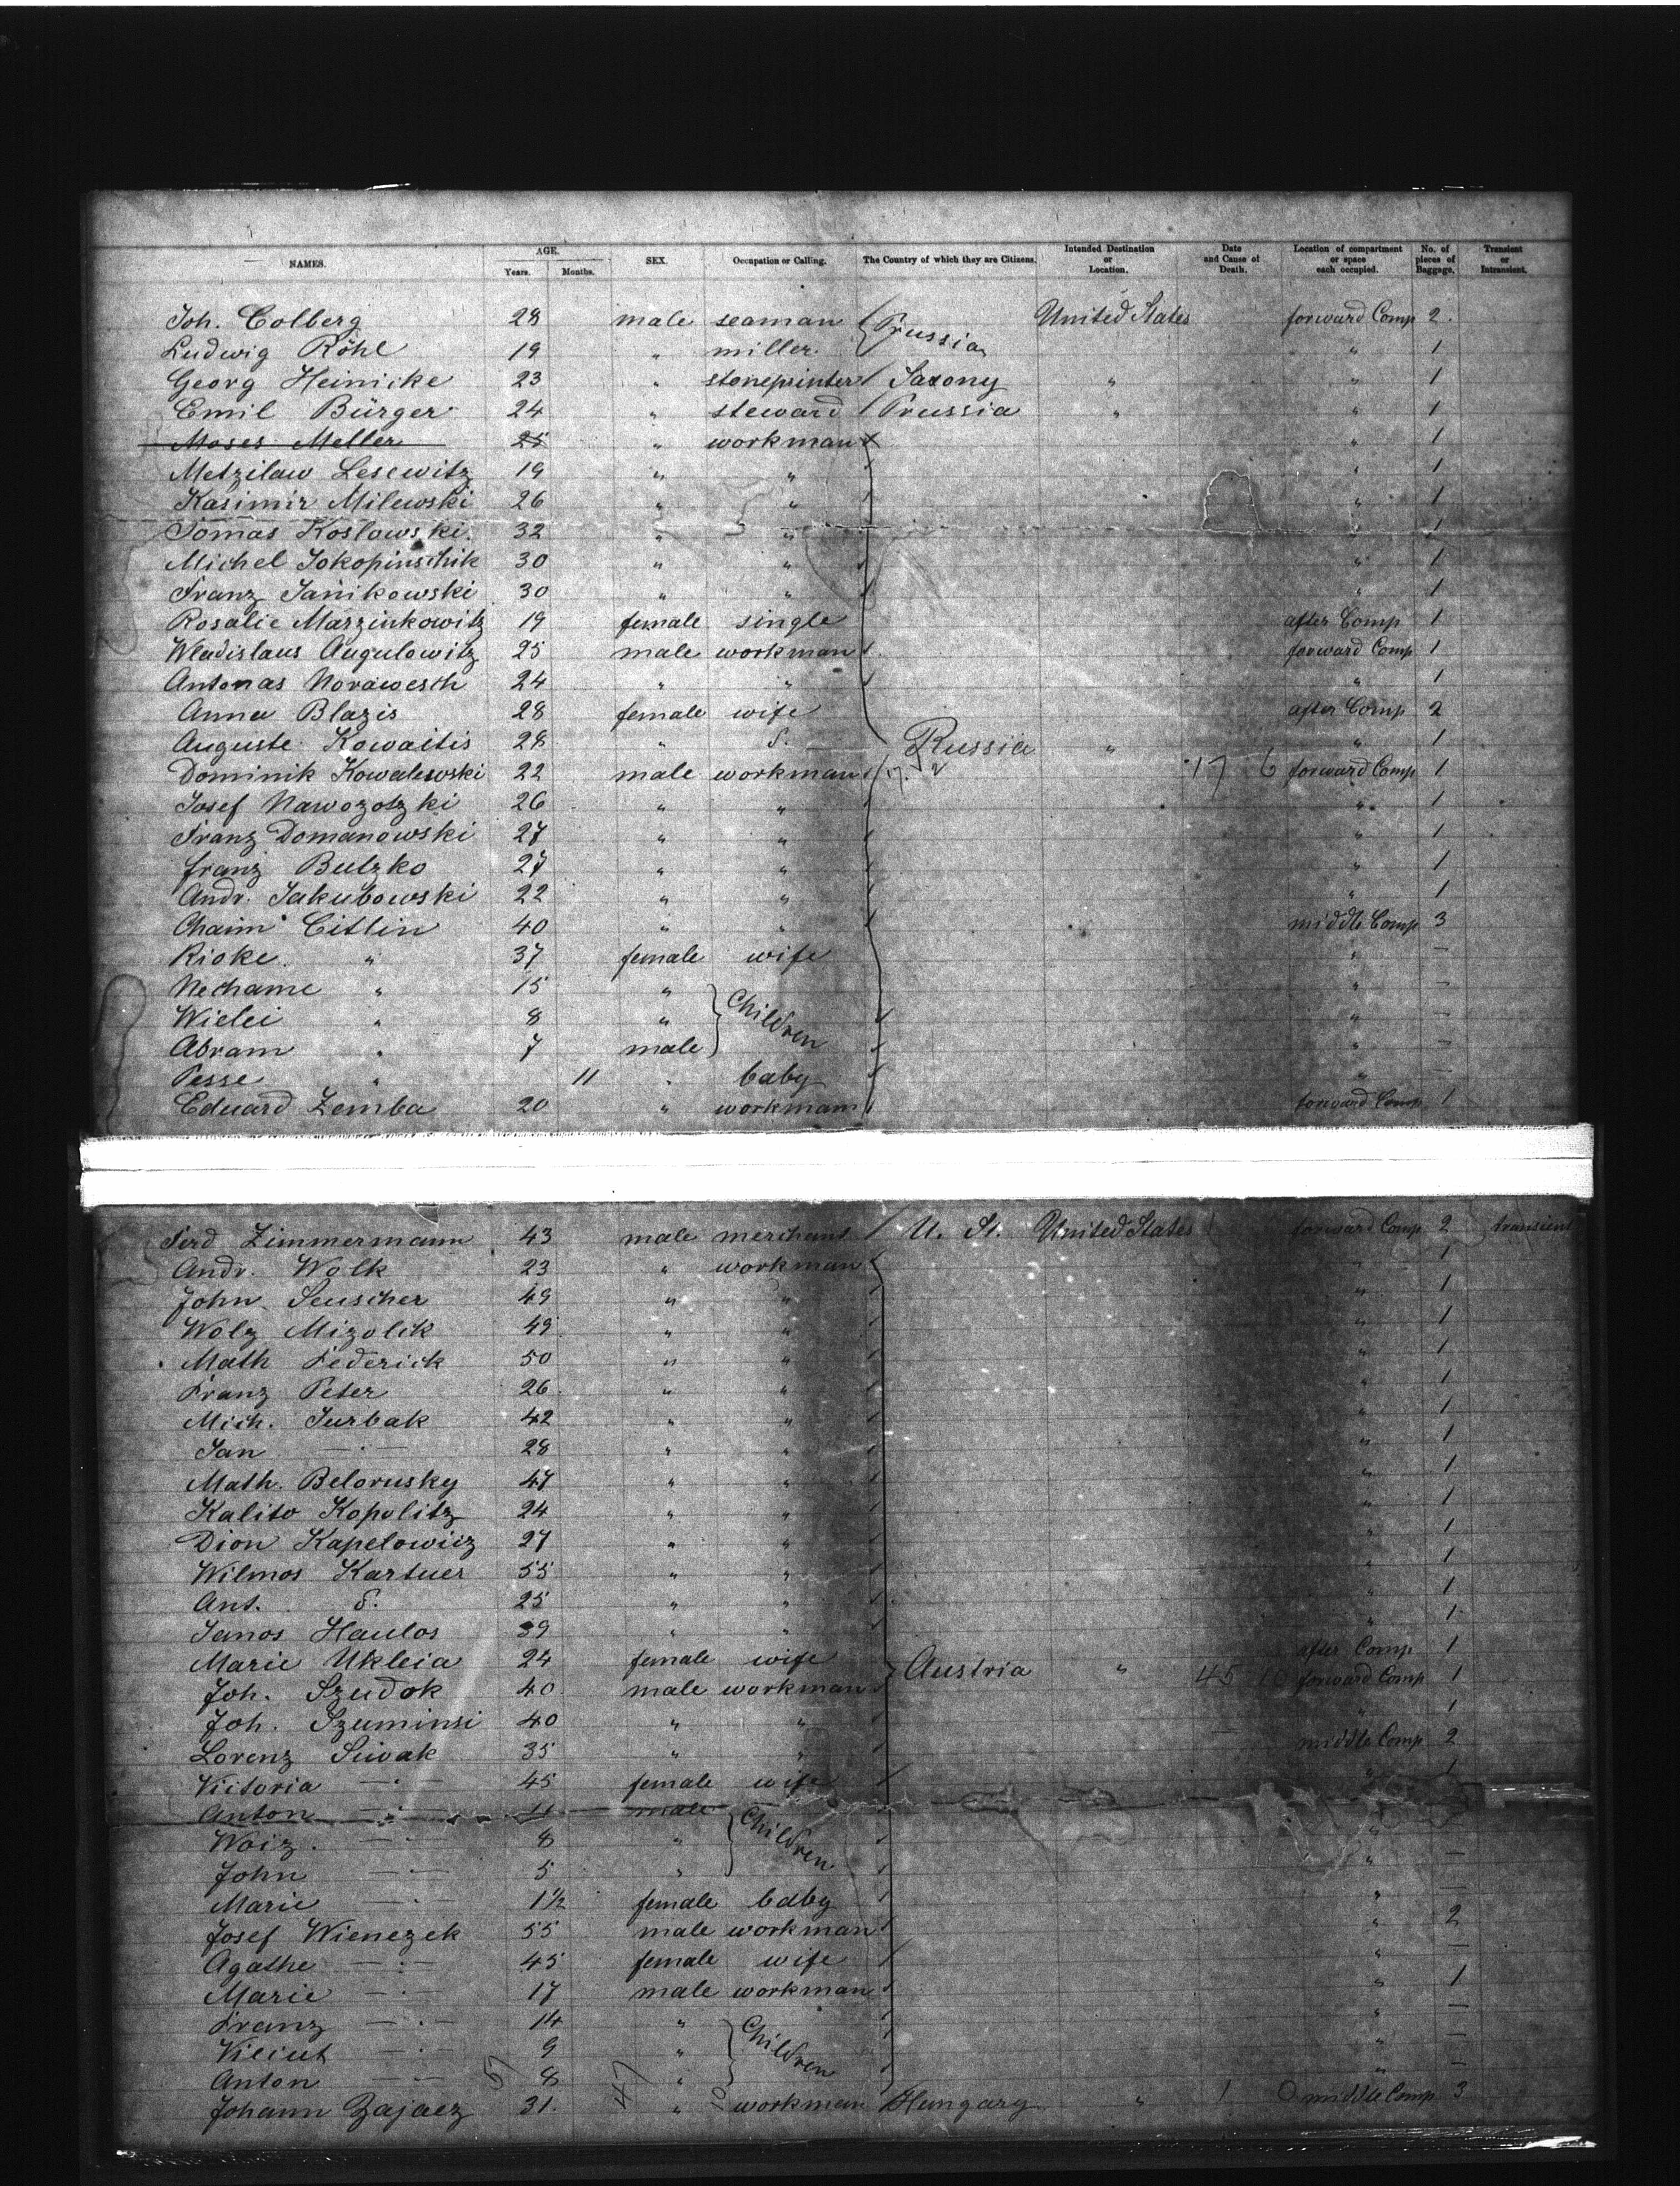 NAMES. AGE. Years. Months. SEX. Occupation or Calling. The Country of which they are Citizens. Intended Destination or Location. Date and Cause of Death. Location of compartment or space each occupied. No. of pieces of Baggage. Transient or Intransient.
Joh. Colberg 28 male seaman Prussia United States forward Comp 2.
Ludwig Röhl 19 " miller " 1
Georg Heinicke 23 " stoneprinter Saxony " " 1
Emil Bürger 24 " steward Prussia " " 1
Moses Meller 25 " workman " 1
Metzilaw Lesewitz 19 " " " 1
Kasimir Milewski 26 " " " 1
Tomas Koslowski. 32 " " " 1
Michel Jokopinschik 30 " " " 1
Franz Janikowski 30 " " " 1
Rosalie Marzinkowitz 19 female single after Comp 1
Wladislaus Augulowitz 25 male workman forward Comp 1
Antonas Norawesch 24 " " " 1
Anna Blazis 28 female wife after Comp 2
Auguste Kowaitis 28 " S. Russia " " 1
Dominik Kowalewski 22 male workman 17 6 forward Comp 1
Josef Nawozotzki 26 " " " 1
Franz Domanowski 27 " " " 1
Franz Butzko 27 " " " 1
Andr. Jakubowski 22 " " " 1
Chaim Citlin 40 " " middle Comp 3
Rioke " 37 female wife " —
Nechame " 15 " Children " —
Wielei " 8 " " —
Abram " 7 male " —
Pesse " 11 " baby " —
Eduard Zemba 20 " workman forward Comp 1
Ferd Zimmermann 43 male merchant U. St. United States forward Comp 2 transient
Andr. Wolk 23 " workman " 1
John Seuscher 49 " " " 1
Wolz Mizolik 49 " " " 1
Math Federick 50 " " " 1
Franz Peter 26 " " " 1
Mich. Jurbak 42 " " " 1
Jan —"— 28 " " " 1
Math. Belorusky 47 " " " 1
Kalito Kopolitz 24 " " " 1
Dion Kapelowicz 27 " " " 1
Wilmos Kartuer 55 " " " 1
Ant. S. 25 " " " 1
Janos Haulos 39 " " " 1
Marie Ukleia 24 female wife Austria " after Comp 1
Joh. Szudok 40 male workman 45 10 forward Comp 1
Joh. Szuminsi 40 " " " 1
Lorenz Siwak 35 " " middle Comp 2
Victoria —"— 45 female wife " 1
Anton —"— 11 male Children
Woiz. —"— 8 " "
John —"— 5 " " —
Marie —"— 1½ female baby " —
Josef Wienezek 55 male workman " 2
Agathe —"— 45 female wife " —
Marie —"— 17 male workman " 1
Franz —"— 14 " Children " —
—"— 9 " " —
Anton —"— 8 " " —
Johann Zajacz 31. " workman Hungary " 1 0 middle Comp 3